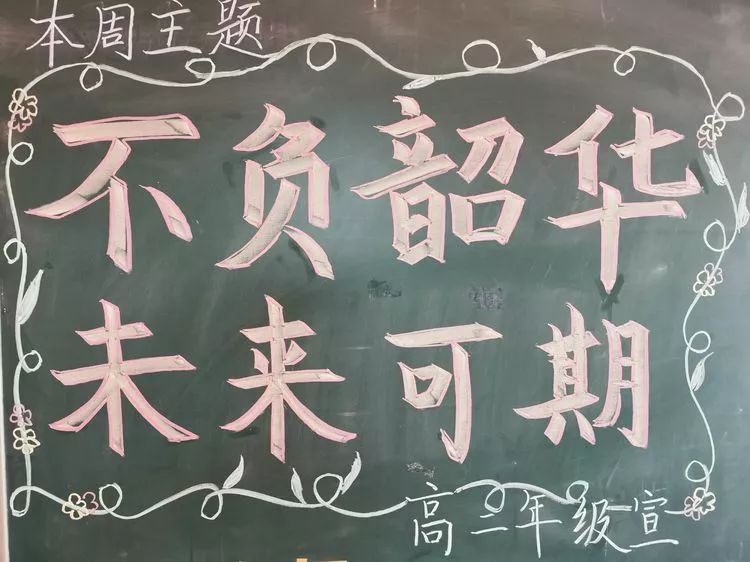 本周主题
不负韶华
未来可期
高二年级宣